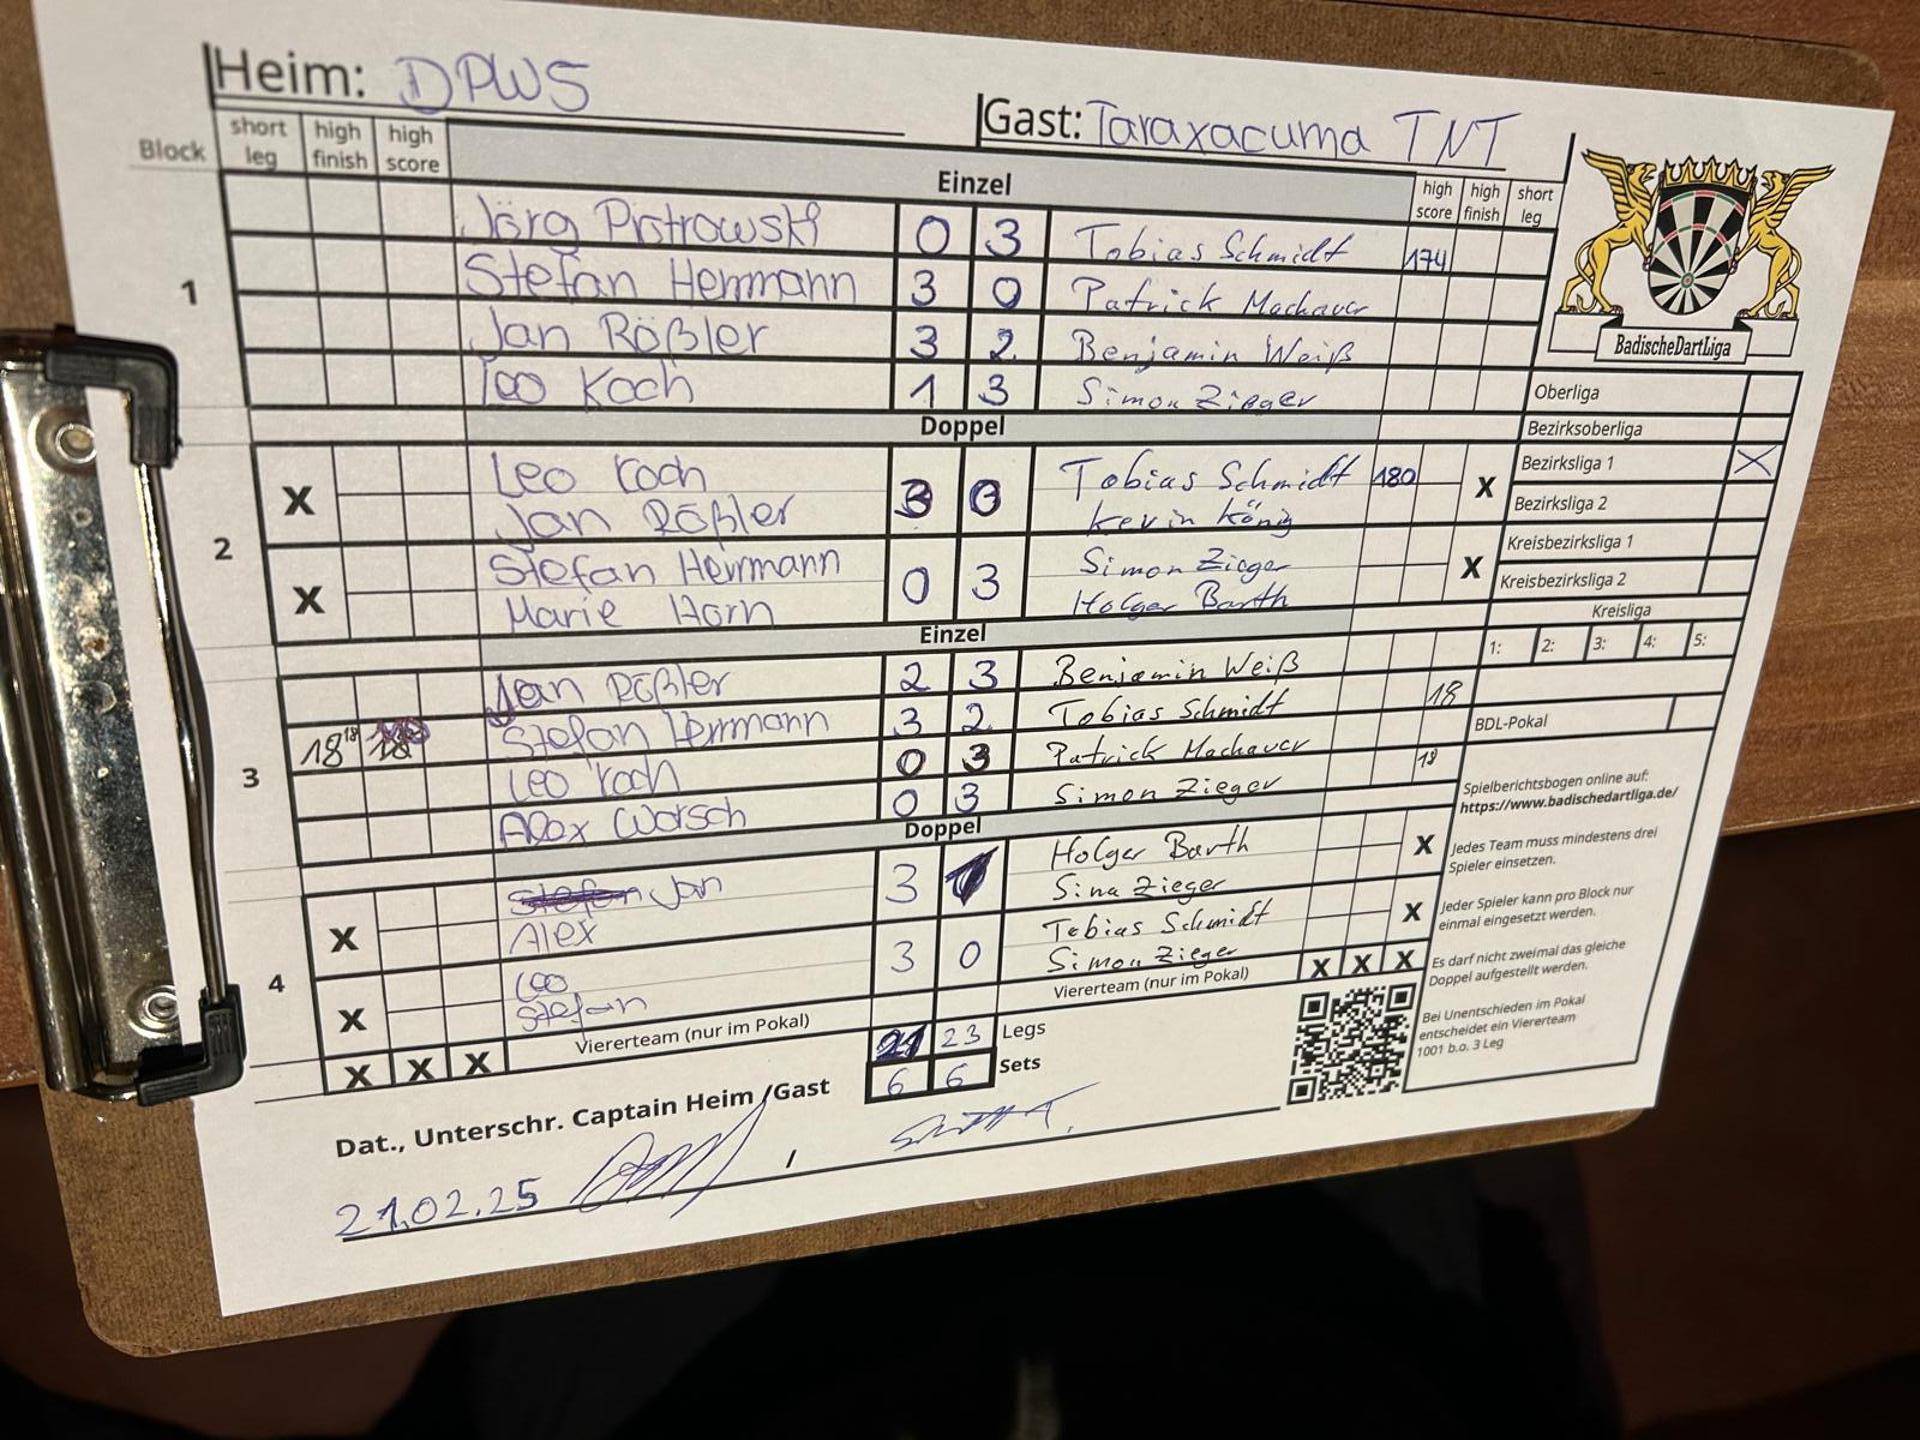 Heim: DPWS
Gast: Taraxacuma TNT
Block short leg high finish high score
Einzel
high score high finish short leg
1
Jörg Piotrowski 0 3 Tobias Schmidt 174
Stefan Herrmann 3 0 Patrick Machauer
Jan Rößler 3 2 Benjamin Weiß
Leo Koch 1 3 Simon Zieger
Doppel
2
X Leo Koch 3 0 Tobias Schmidt 180 X
Jan Rößler Kevin König
X Stefan Herrmann 0 3 Simon Zieger X
Marie Horn Holger Barth
Einzel
3
Jan Rößler 2 3 Benjamin Weiß
18 18 18 Stefan Herrmann 3 2 Tobias Schmidt 18
Leo Koch 0 3 Patrick Machauer
Alex Worsch 0 3 Simon Zieger
Doppel
4
X Jan 3 Holger Barth X
Alex Sina Zieger
X Leo 3 0 Tobias Schmidt X
Stefan Simon Zieger
X X X Viererteam (nur im Pokal) Viererteam (nur im Pokal) X X X
21 23 Legs
6 6 Sets
Dat., Unterschr. Captain Heim /Gast
21.02.25 /
BadischeDartLiga
Oberliga
Bezirksoberliga
Bezirksliga 1 X
Bezirksliga 2
Kreisbezirksliga 1
Kreisbezirksliga 2
Kreisliga
1: 2: 3: 4: 5:
BDL-Pokal
Spielberichtsbogen online auf:
https://www.badischedartliga.de/
Jedes Team muss mindestens drei
Spieler einsetzen.
Jeder Spieler kann pro Block nur
einmal eingesetzt werden.
Es darf nicht zweimal das gleiche
Doppel aufgestellt werden.
Bei Unentschieden im Pokal
entscheidet ein Viererteam
1001 b.o. 3 Leg